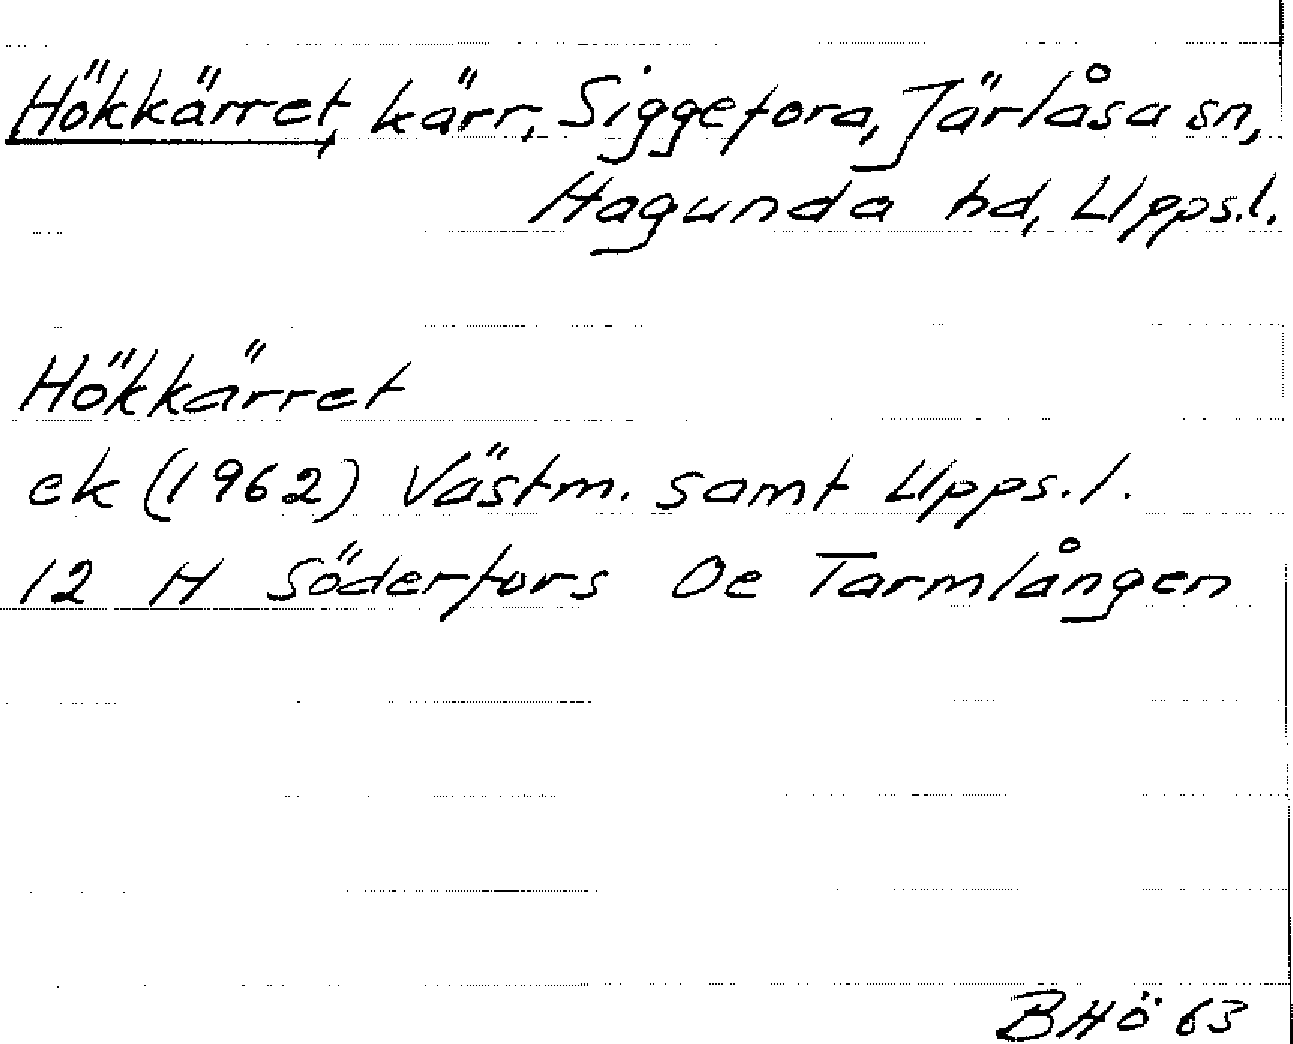 Hökkärret, kärr, Siggefora, Järlåsa sn,
Hagunda hd, Upps.l.
Hökkärret
ek (1962) Västm. samt Upps.l.
12 H Söderfors Oe Tarmlången
BHÖ 63